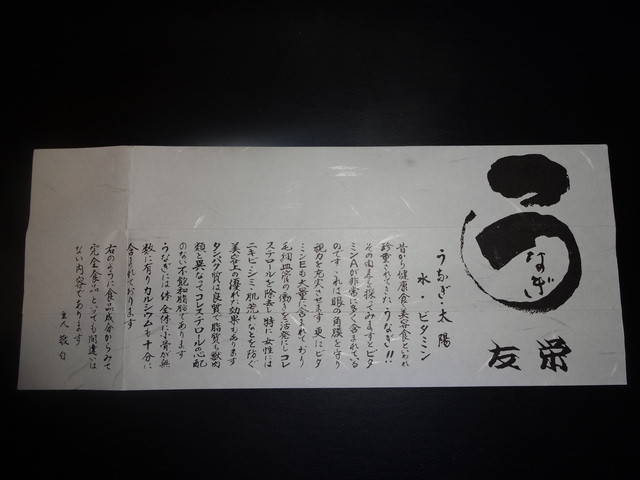 うなぎ
友栄
うなぎ・太陽
水・ビタミン
昔から健康食・美容食といわれ
珍重されてきたうなぎ!!
その内unit を探ってみますとビタ
ミンAが非常に多く含まれている
のです これは眼の角膜を守り
視力を充実させます 更にビタ
ミンEも大量に含まれており
毛細血管の働きを活発にしコレ
ステロールを除去し特に女性には
ニキビ・シミ・肌荒れなどを防ぐ
美容上の優れた効果もあります
タンパク質は良質で脂質も獣肉
類と異なってコレステロールの心配
のない不飽和脂肪であります
うなぎには体全体に小骨が無
数に有りカルシウムも十分に
含まれております
右のように食品成分からみて
完全食品といっても間違いは
ない内容であります
主人 敬白